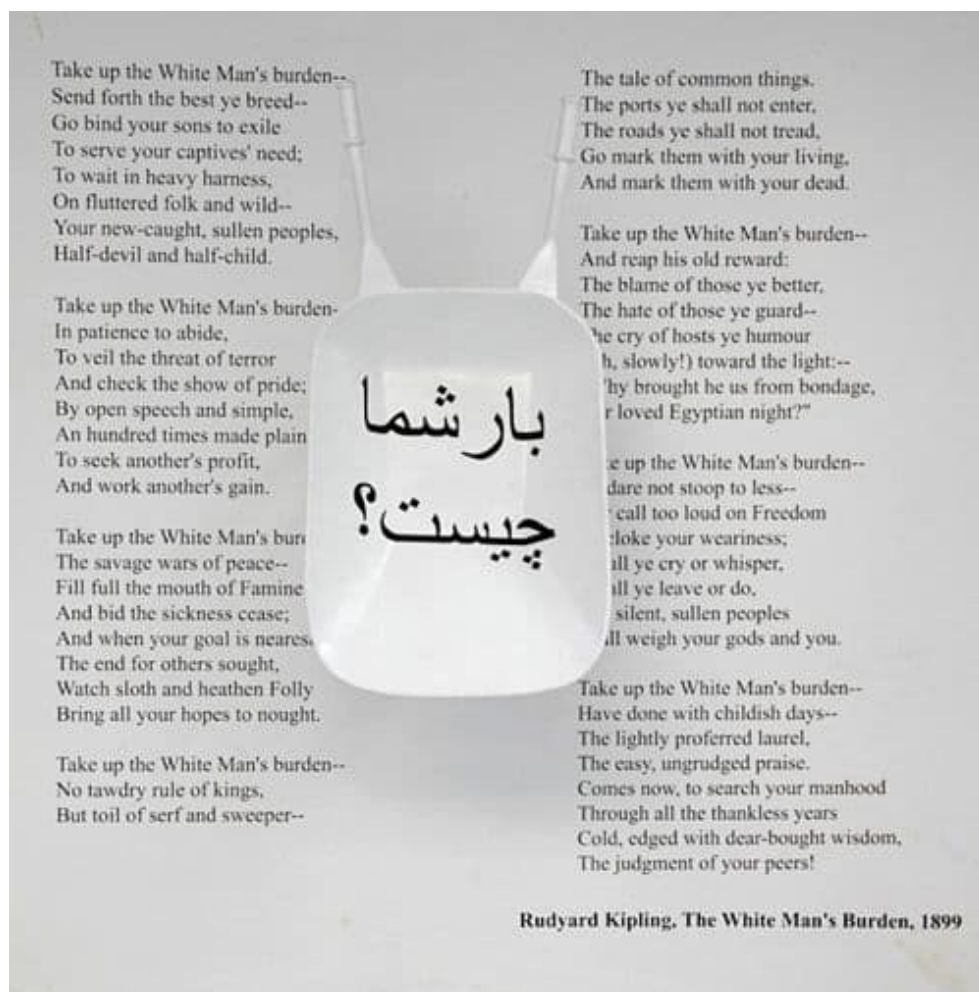 Take up the White Man's burden--
Send forth the best ye breed--
Go bind your sons to exile
To serve your captives' need;
To wait in heavy harness,
On fluttered folk and wild--
Your new-caught, sullen peoples,
Half-devil and half-child.
Take up the White Man's burden-
In patience to abide,
To veil the threat of terror
And check the show of pride;
By open speech and simple,
An hundred times made plain
To seek another's profit,
And work another's gain.
Take up the White Man's
The savage wars of peace--
Fill full the mouth of Famine
And bid the sickness cease;
And when your goal is
The end for others sought,
Watch sloth and heathen Folly
Bring all your hopes to nought.
Take up the White Man's burden--
No tawdry rule of kings,
But toil of serf and sweeper--
بار شما
چیست؟
The tale of common things.
The ports ye shall not enter,
The roads ye shall not tread,
Go mark them with your living,
And mark them with your dead.
Take up the White Man's burden--
And reap his old reward:
The blame of those ye better,
The hate of those ye guard--
cry of hosts ye humour
slowly!) toward the light:--
brought he us from bondage,
loved Egyptian night?"
up the White Man's burden--
dare not stoop to less--
call too loud on Freedom
your weariness;
ye cry or whisper,
ye leave or do,
silent, sullen peoples
weigh your gods and you.
Take up the White Man's burden--
Have done with childish days--
The lightly proferred laurel,
The easy, ungrudged praise.
Comes now, to search your manhood
Through all the thankless years
Cold, edged with dear-bought wisdom,
The judgment of your peers!
Rudyard Kipling, The White Man's Burden, 1899